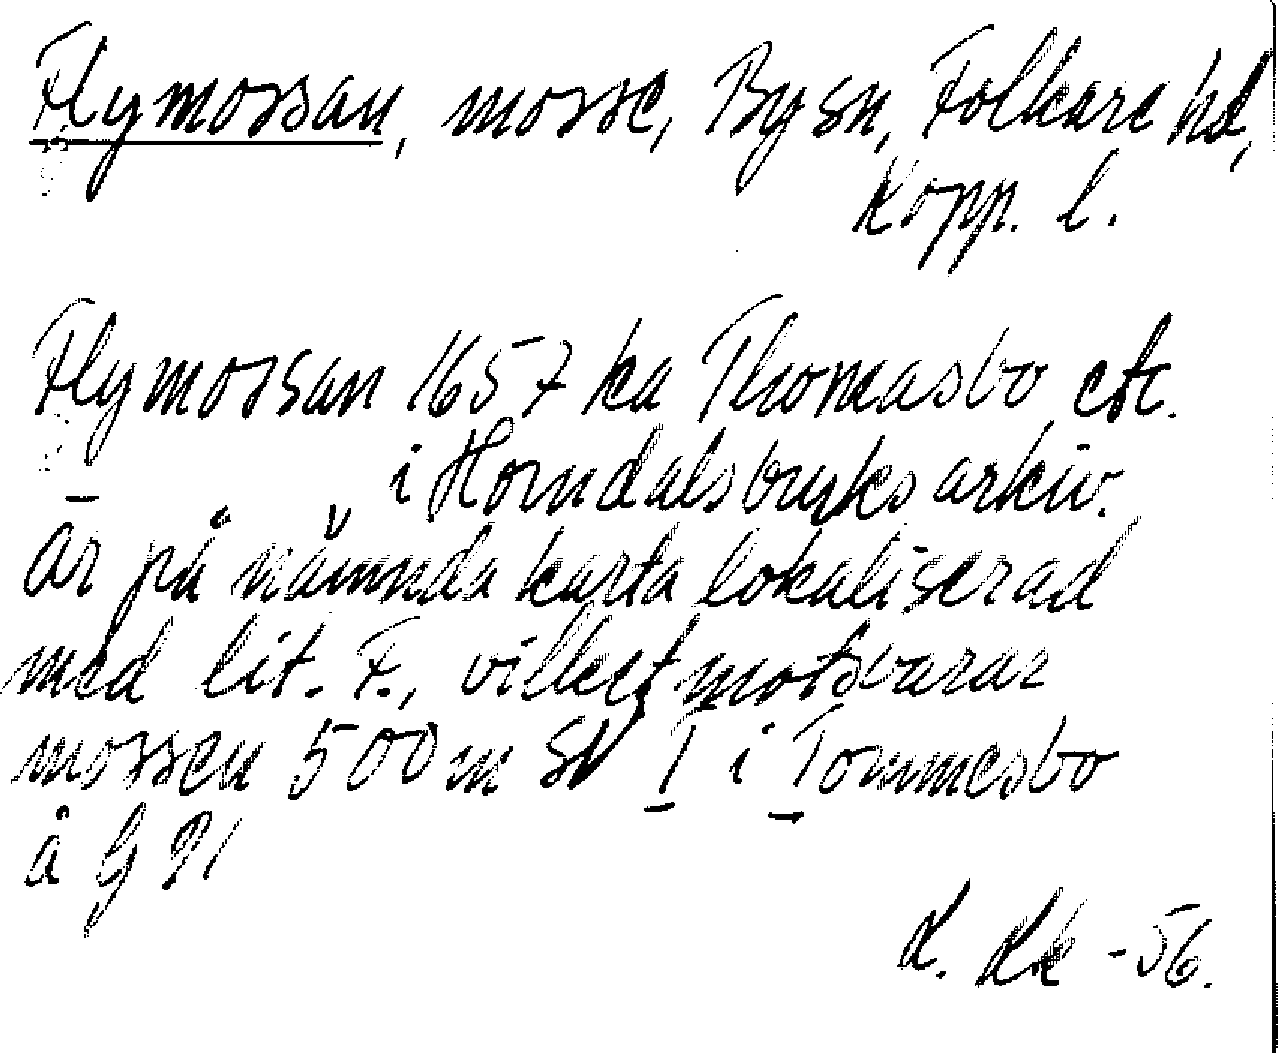 Flymossan, mosse, By sn, Folkare hd,
Kopp. l.
Flymossan 1657 ka Thomasbo etc.
i Horndalsbruks arkiv.
Är på nämnda karta lokaliserad
med lit. F., vilket motsvarar
mossen 500 m SV T i Tommesbo
å G 91
-56.